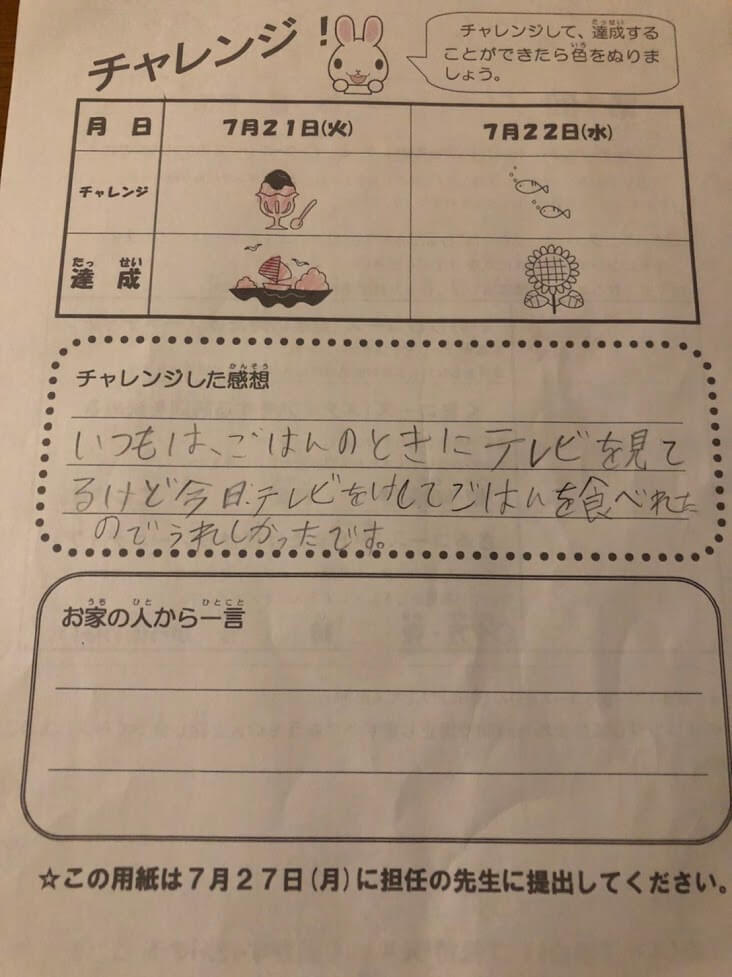 チャレンジ!
チャレンジして、達成する
ことができたら色をぬりま
しょう。
月 日
7月21日(火)
7月22日(水)
チャレンジ
達成
チャレンジした感想
いつもは、ごはんのときにテレビを見て
るけど今日、テレビをけしてごはんを食べれた
のでうれしかったです。
お家の人から一言
☆この用紙は7月27日(月)に担任の先生に提出してください。